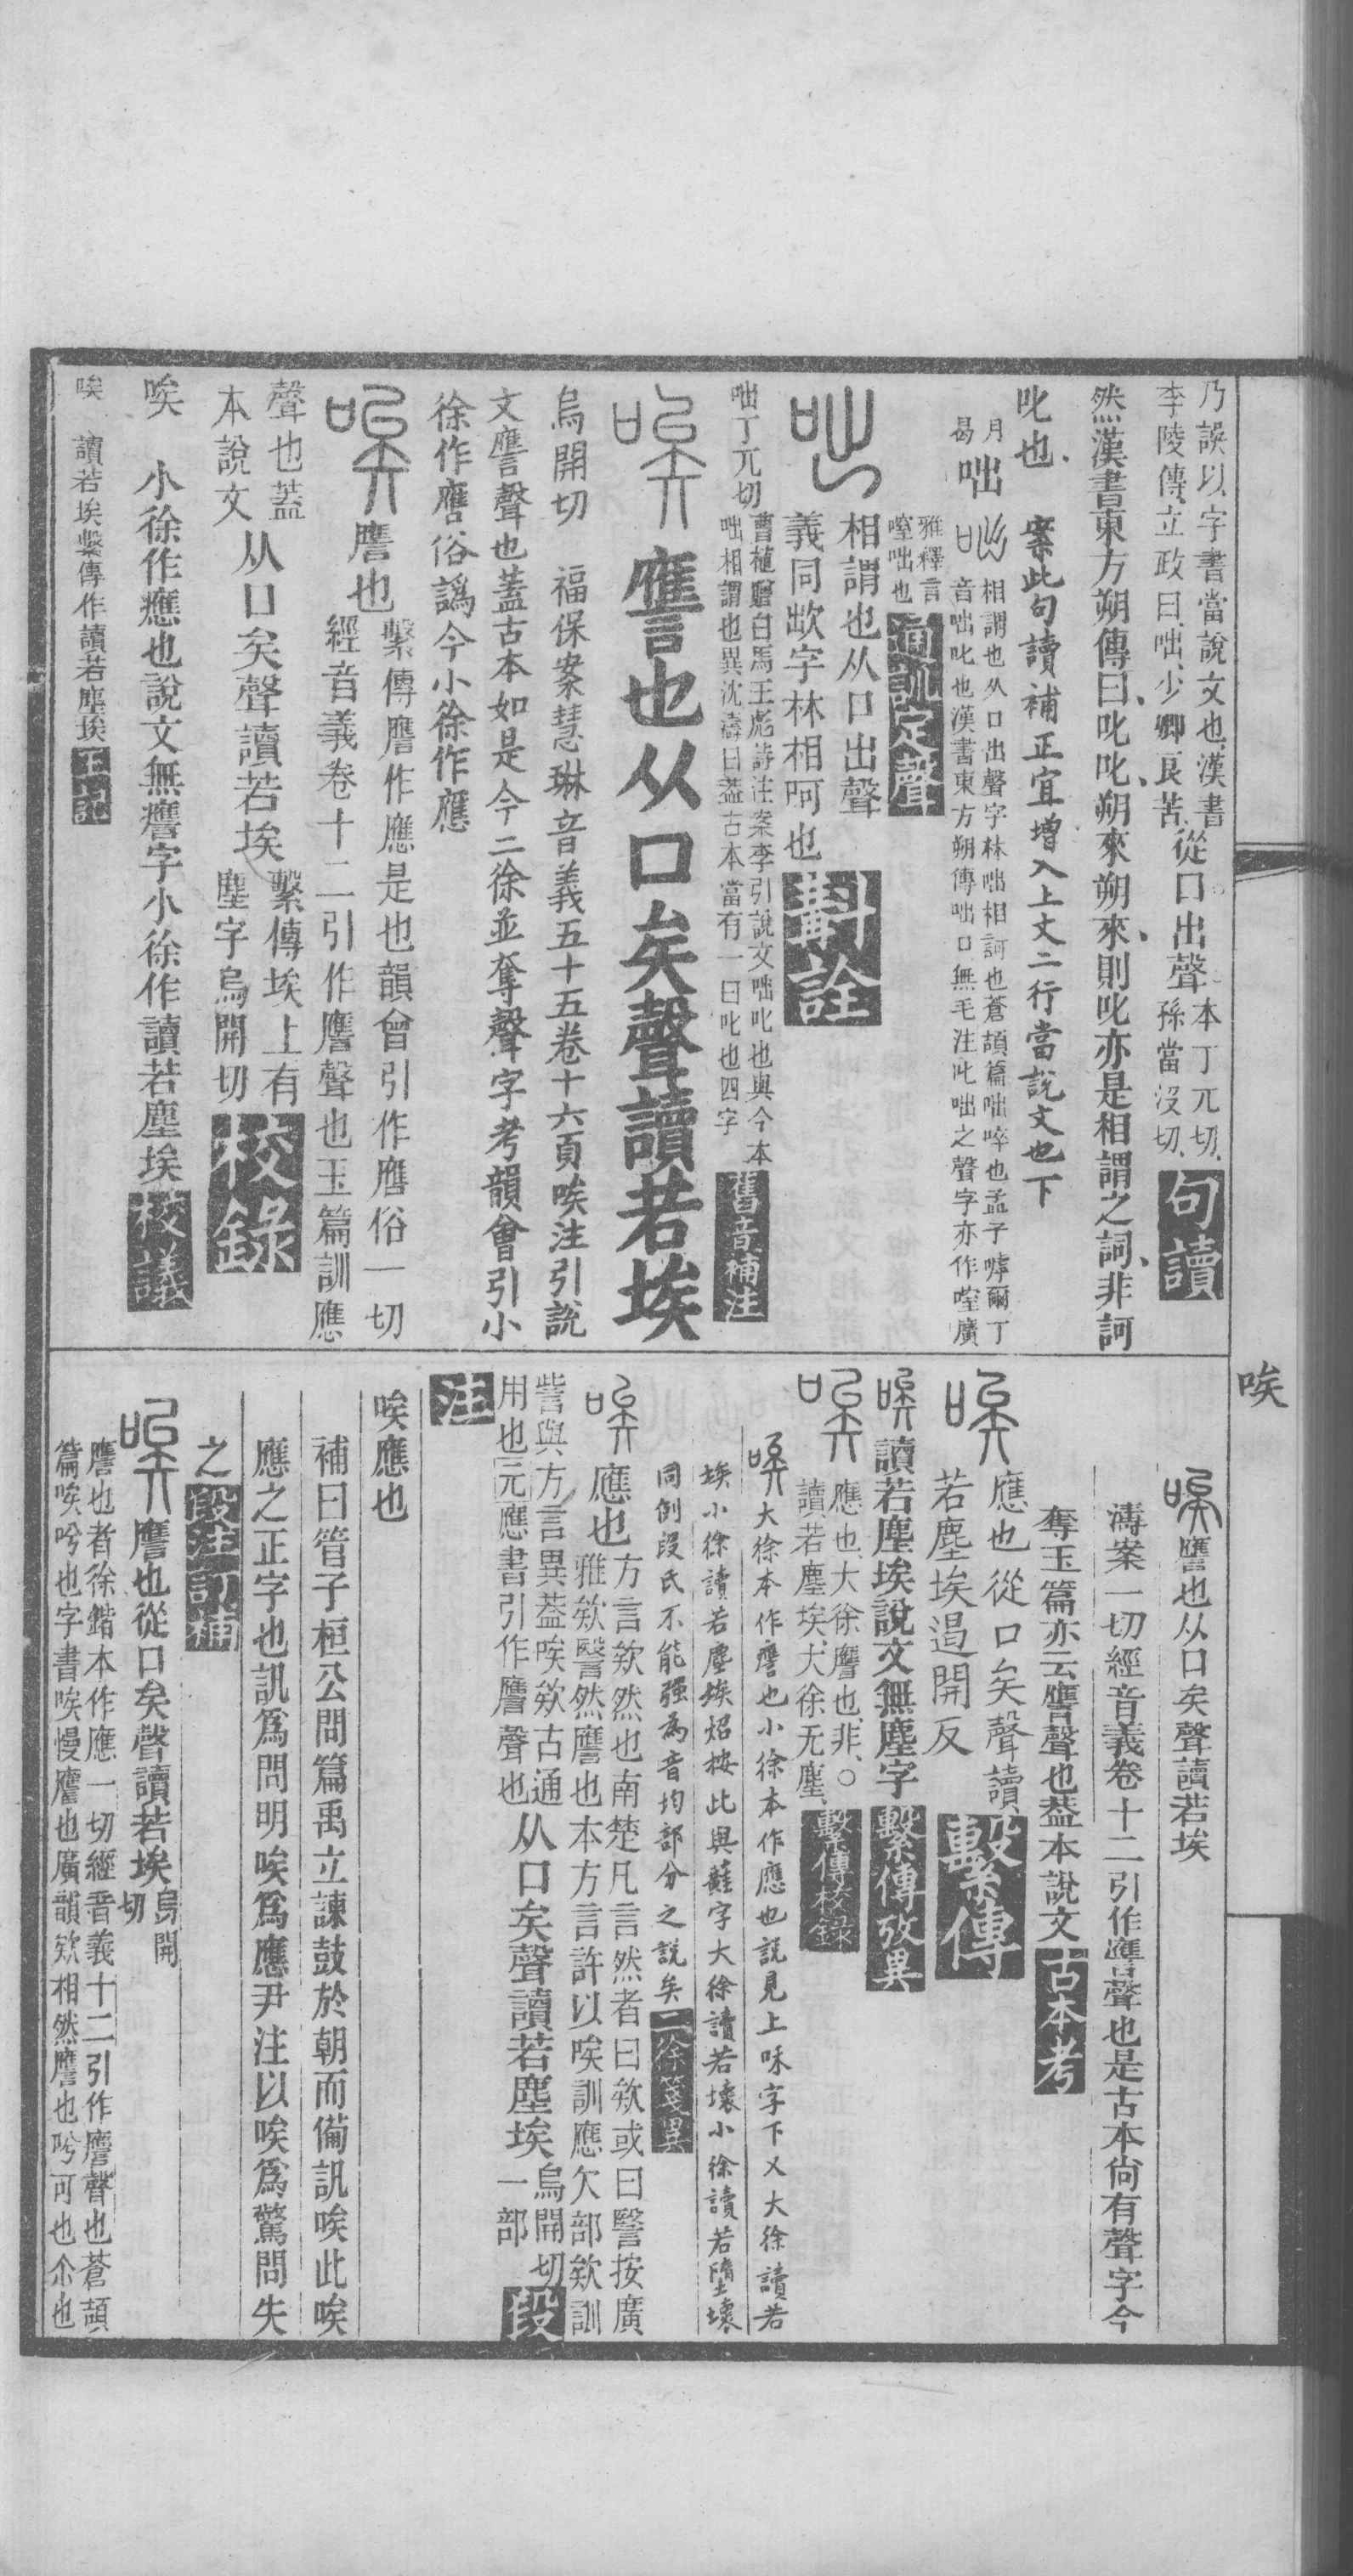 乃誤以字書當說文也漢書
李陵傳立政曰咄少卿良苦
從口出聲
本丁兀切
孫當沒切
句讀
然漢書東方朔傳曰叱叱朔來朔來則叱亦是相謂之詞非訶
叱也
案此句讀補正宜增入上文二行當說文也下
月
曷
咄
相謂也从口出聲字林咄相訶也蒼頡篇咄啐也孟子嘑爾丁
音咄叱也漢書東方朔傳咄口無毛注叱咄之聲字亦作㗌廣
雅釋言
㗌咄也
通訓定聲
相謂也从口出聲
義同欪字林相呵也
斠詮
咄丁兀切
曹植贈白馬王彪詩注案李引說文咄叱也與今本
咄相謂也異沈濤曰蓋古本當有一曰叱也四字
舊音補注
譍也从口矣聲讀若埃
烏開切
福保案慧琳音義五十五卷十六頁唉注引說
文譍聲也蓋古本如是今二徐並奪聲字考韻會引小
徐作噟俗譌今小徐作應
譍也
繫傳譍作應是也韻會引作噟俗一切
經音義卷十二引作譍聲也玉篇訓應
聲也蓋
本說文
从口矣聲讀若埃
繫傳埃上有
塵字烏開切
校錄
唉
小徐作應也說文無譍字小徐作讀若塵埃
校議
唉
讀若埃繫傳作讀若塵埃
唉
譍也从口矣聲讀若埃
濤案一切經音義卷十二引作譍聲也是古本尚有聲字今
奪玉篇亦云譍聲也蓋本說文
古本考
應也從口矣聲讀
若塵埃遏開反
繫傳
讀若塵埃說文無塵字
繫傳攷異
應也大徐譍也非○
讀若塵埃大徐无塵
繫傳校錄
大徐本作譍也小徐本作應也説見上咊字下又大徐讀若
埃小徐讀若塵埃炤按此與蓷字大徐讀若壞小徐讀若墮壞
同例段氏不能强為音均部分之説矣
二徐箋異
應也
方言欸然也南楚凡言然者曰欸或曰譥按廣
雅欸譥然譍也本方言許以唉訓應欠部欸訓
訾與方言異蓋唉欸古通
用也元應書引作譍聲也
从口矣聲讀若塵埃
烏開切
一部
段
注
唉應也
補曰管子桓公問篇禹立諫鼓於朝而備訊唉此唉
應之正字也訊爲問明唉爲應尹注以唉爲驚問失
之
段注訂補
譍也從口矣聲讀若埃
烏開
切
譍也者徐鍇本作應一切經音義十二引作譍聲也蒼頡
篇唉吟也字書唉慢譍也廣韻欸相然譍也吟可也尒也